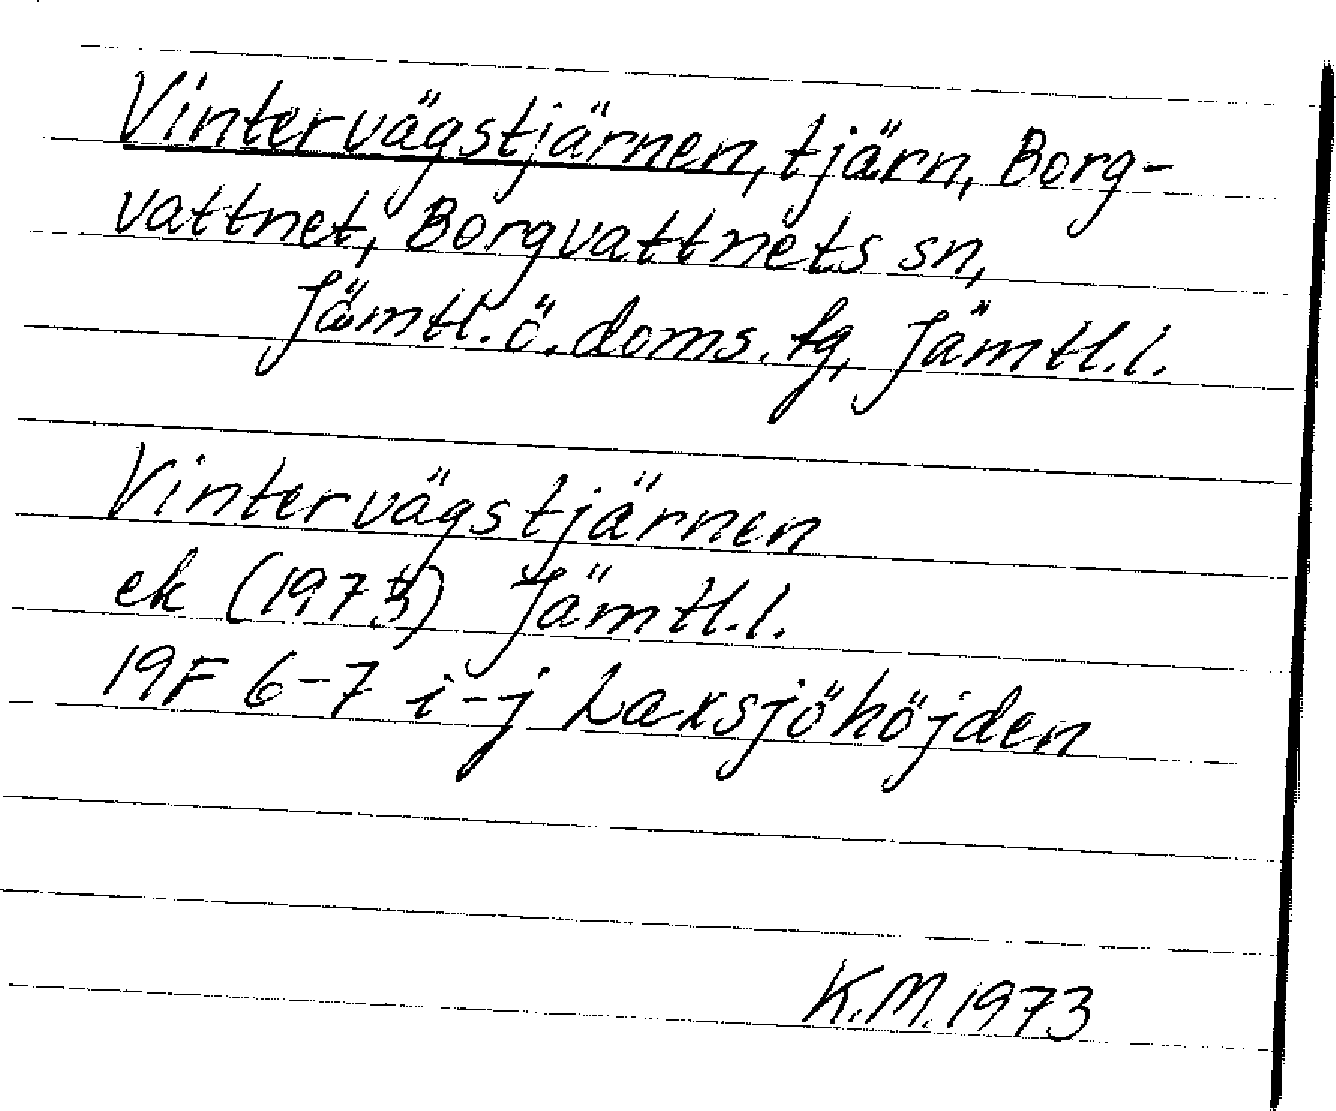 Vintervägstjärnen, tjärn, Borg-
vattnet, Borgvattnets sn,
Jämtl. ö. doms. fg, Jämtl. l.
Vintervägstjärnen
ek (1973) Jämtl. l.
19F 6-7 i-j Laxsjöhöjden
K.M. 1973